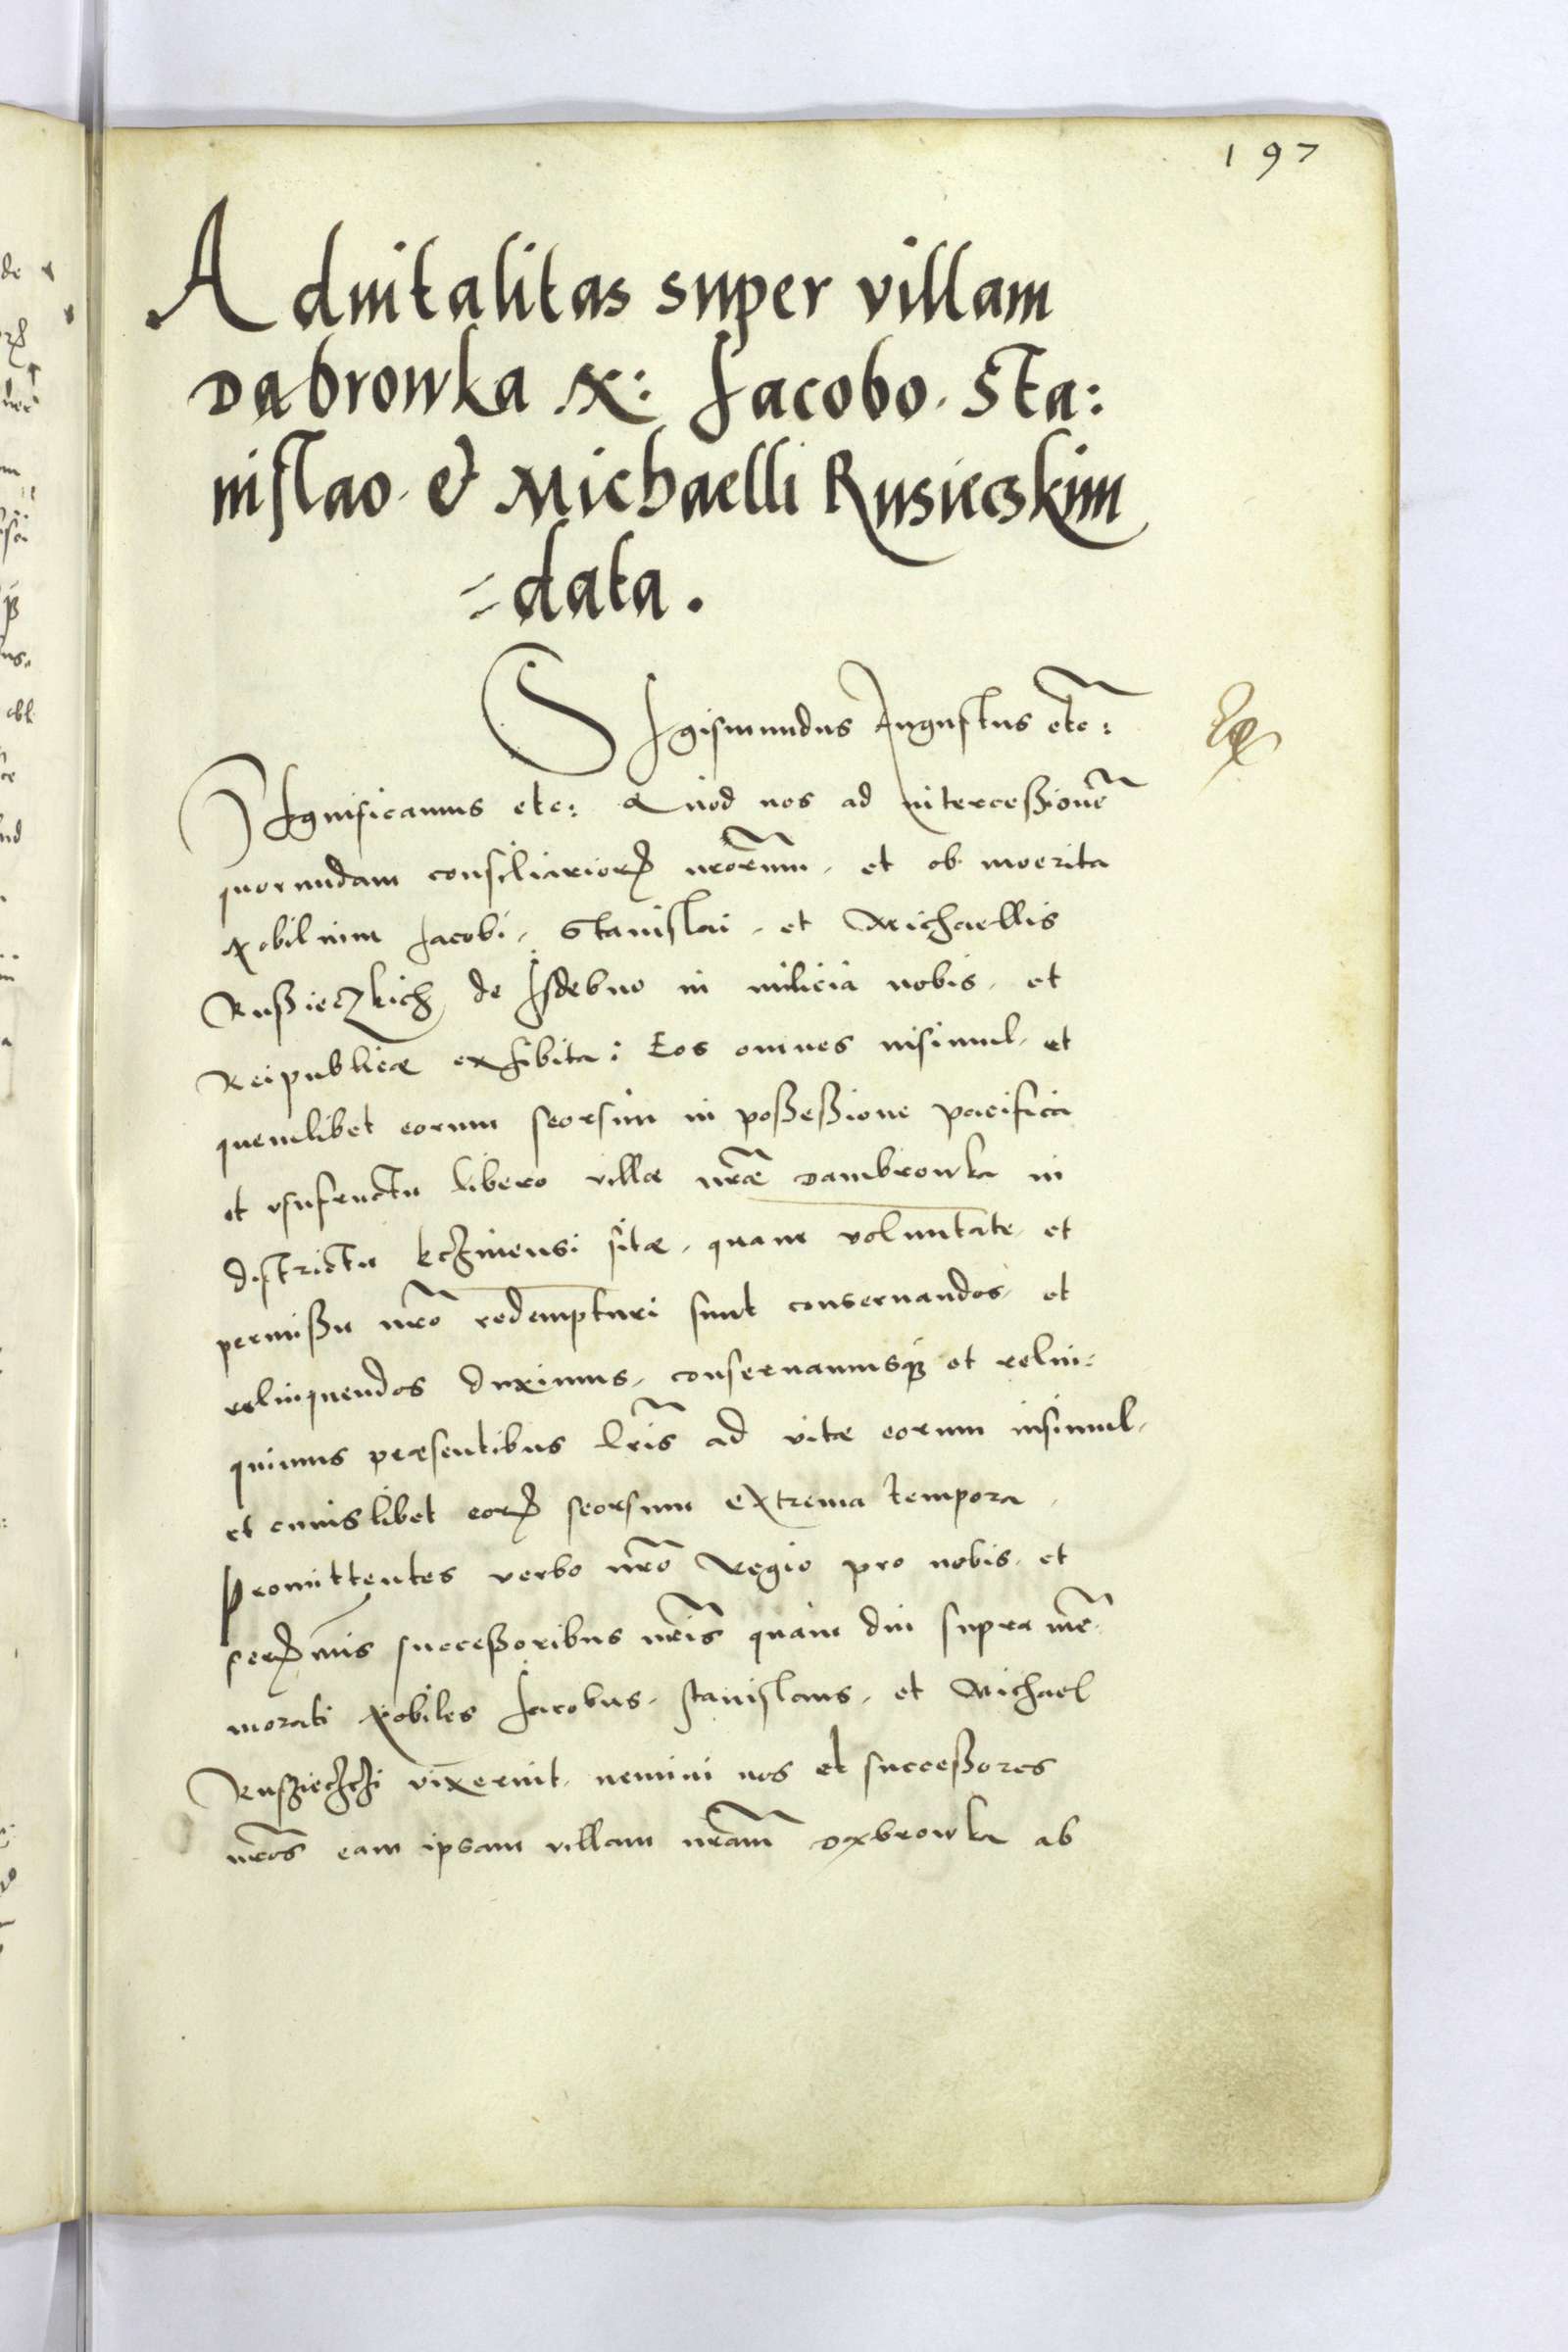 197
Aduitalitas super villam
Dąbrowka N: Jacobo. Sta:
nislao. & Michaelli Rusieczkim
data.
SIgismundus Augustus etc:
SIgnificamus etc: Quod nos ad intercessionẽ
quorundam consiliarioꝝ nrorum. et ob moerita
Nobilium Jacobi. Stanislai. et Michaellis
Rußieczkich de Isdebno in milicia nobis. et
Reipublicæ exhibita: Eos omnes insimul. et
quemlibet eorum seorsim in poßeßione pacifica
et vsufructu libero villæ nræ Dambrowka in
districtu sitæ. quam voluntate et
permißu nro redempturi sunt conseruandos. et
relinquendos duximus. conseruamusqꝫ et relin:
quimus præsentibus lris ad vitæ eorum insimul.
et cuiuslibet eoꝝ seorsum extrema tempora.
Promittentes verbo nro Regio pro nobis. et
sereꝝmis succeßoribus nris quam diu supra me
morati Nobiles Jacobus. Stanislaus. et Michael
vixerint. nemini nos et succeßores
nros eam ipsam villam nram Dąbrowka ab